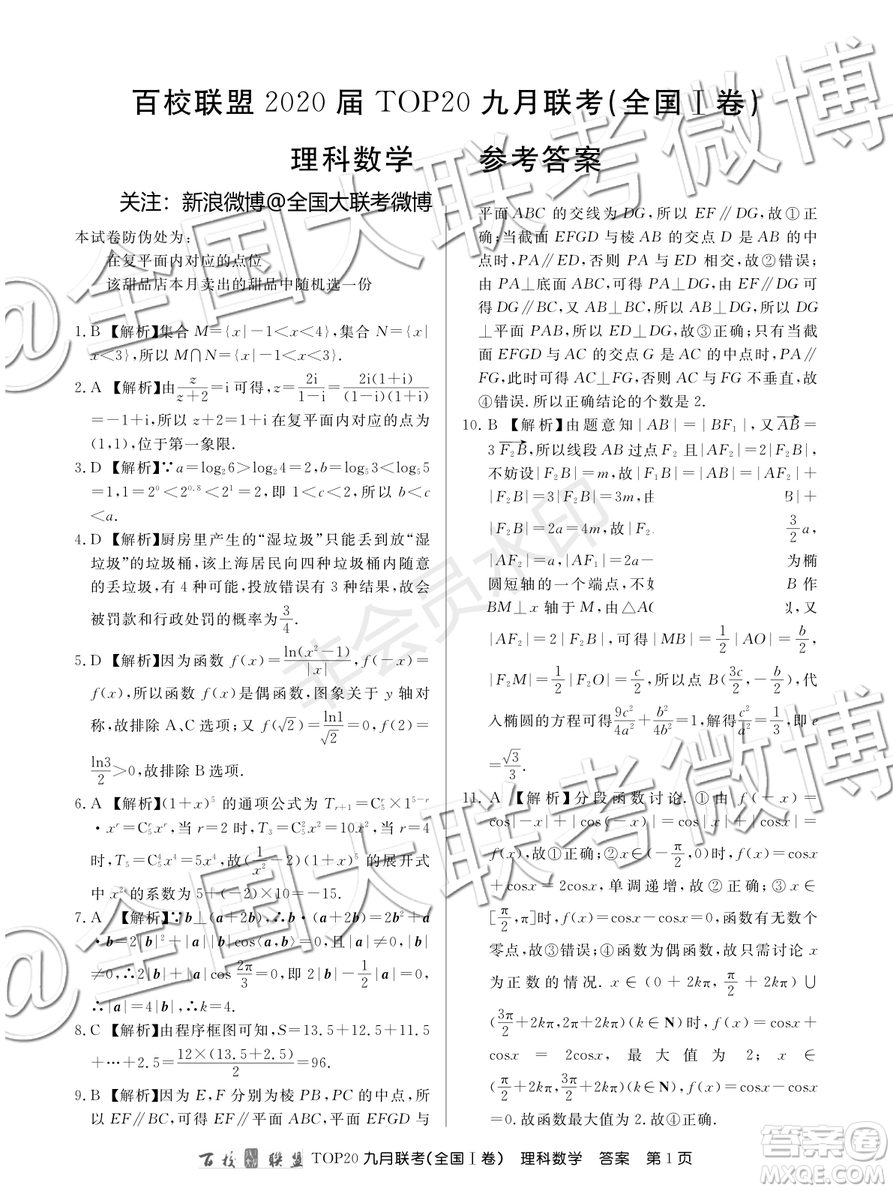 百校联盟 2020 届 TOP20 九月联考(全国Ⅰ卷)
理科数学 参考答案
关注：新浪微博@全国大联考微博
本试卷防伪处为：
在复平面内对应的点位
该甜品店本月卖出的甜品中随机选一份
1. B 【解析】集合 M={x|-1<x<4},集合 N={x|
x<3},所以 M∩N={x|-1<x<3}.
2. A 【解析】由z/(z+2)=i 可得,z=2i/(1-i)=2i(1+i)/((1-i)(1+i))
=-1+i,所以 z+2=1+i 在复平面内对应的点为
(1,1),位于第一象限.
3. D 【解析】∵a=log₂6>log₂4=2,b=log₅3<log₅5
=1,1=2⁰<2^0.8<2¹=2,即 1<c<2,所以 b<c
<a.
4. D 【解析】厨房里产生的“湿垃圾”只能丢到放“湿
垃圾”的垃圾桶,该上海居民向四种垃圾桶内随意
的丢垃圾,有 4 种可能,投放错误有 3 种结果,故会
被罚款和行政处罚的概率为3/4.
5. D 【解析】因为函数 f(x)=ln(x²-1)/|x|,f(-x)=
f(x),所以函数 f(x)是偶函数,图象关于 y 轴对
称,故排除 A、C 选项;又 f(√2)=ln1/√2=0,f(2)=
ln3/2>0,故排除 B 选项.
6. A 【解析】(1+x)⁵ 的通项公式为 T_{r+1}=C₅^r×1^{5-r}
·x^r=C₅^r x^r,当 r=2 时,T₃=C₅²x²=10x²,当 r=4
时,T₅=C₅⁴x⁴=5x⁴,故(1/x²-2)(1+x)⁵ 的展开式
中 x² 的系数为 5+(-2)×10=-15.
7. A 【解析】∵b⊥(a+2b),∴b·(a+2b)=2b²+a
·b=2|b|²+|a||b|cos⟨a,b⟩=0,且|a|≠0,|b|
≠0,cos2π/3=-1/2≠0,∴2|b|-1/2|a|=0,
∴|a|=4|b|,∴k=4.
8. C 【解析】由程序框图可知,S=13.5+12.5+11.5
+…+2.5=12×(13.5+2.5)/2=96.
9. B 【解析】因为 E,F 分别为棱 PB,PC 的中点,所
以 EF∥BC,可得 EF∥平面 ABC,平面 EFGD 与
平面 ABC 的交线为 DG,所以 EF∥DG,故①正
确;当截面 EFGD 与棱 AB 的交点 D 是 AB 的中
点时,PA∥ED,否则 PA 与 ED 相交,故②错误;
由 PA⊥底面 ABC,可得 PA⊥DG,由 EF∥DG 可
得 DG∥BC,又 AB⊥BC,所以 DG⊥AB,所以 DG
⊥平面 PAB,所以 DG⊥ED,故③正确;只有当截
面 EFGD 与 AC 的交点 G 是 AC 的中点时,PA∥
FG,此时 AC⊥FG,否则 AC 与 FG 不垂直,故
④错误.所以正确结论的个数是 2.
10. B 【解析】由题意知|AB|=|BF₁|,又AB=
3F₂B,所以线段 AB 过点 F₂ 且|AF₂|=2|F₂B|,
不妨设|F₂B|=m,故|F₁B|=|AB|=|AF₂|+
|F₂B|=3|F₂B|=3m,由 B|+
|F₂B|=2a=4m,故|F₂ 3/2a,
|AF₂|=a,|AF₁|=2a- 为椭
圆短轴的一个端点,不妨 B 作
BM⊥x 轴于 M,由△AO 以,又
|AF₂|=2|F₂B|,可得|MB|=1/2|AO|=b/2,
|F₂M|=1/2|F₂O|=c/2,所以点 B(3c/2,-b/2),代
入椭圆的方程可得9c²/4a²+b²/4b²=1,解得c²/a²=1/3,即 e
=√3/3.
11. A 【解析】分段函数讨论.①由 f(-x)=
cos|-x|+|cos(-x)|=cos|x|+|cosx|=
f(x),故①正确;②x∈(-π/2,0)时,f(x)=cosx
+cosx=2cosx,单调递增,故②正确;③x∈
[π/2,π]时,f(x)=cosx-cosx=0,函数有无数个
零点,故③错误;④函数为偶函数,故只需讨论 x
为正数的情况.x∈(0+2kπ,π/2+2kπ)∪
(3π/2+2kπ,2π+2kπ)(k∈N)时,f(x)=cosx+
cosx=2cosx,最大值为 2;x∈
(π/2+2kπ,3π/2+2kπ)(k∈N)时,f(x)=cosx-cosx
=0.故函数最大值为 2.故④正确.
百校联盟 TOP20 九月联考(全国Ⅰ卷) 理科数学 答案 第 1 页
@全国大联考微博
非会员水印
答案圈